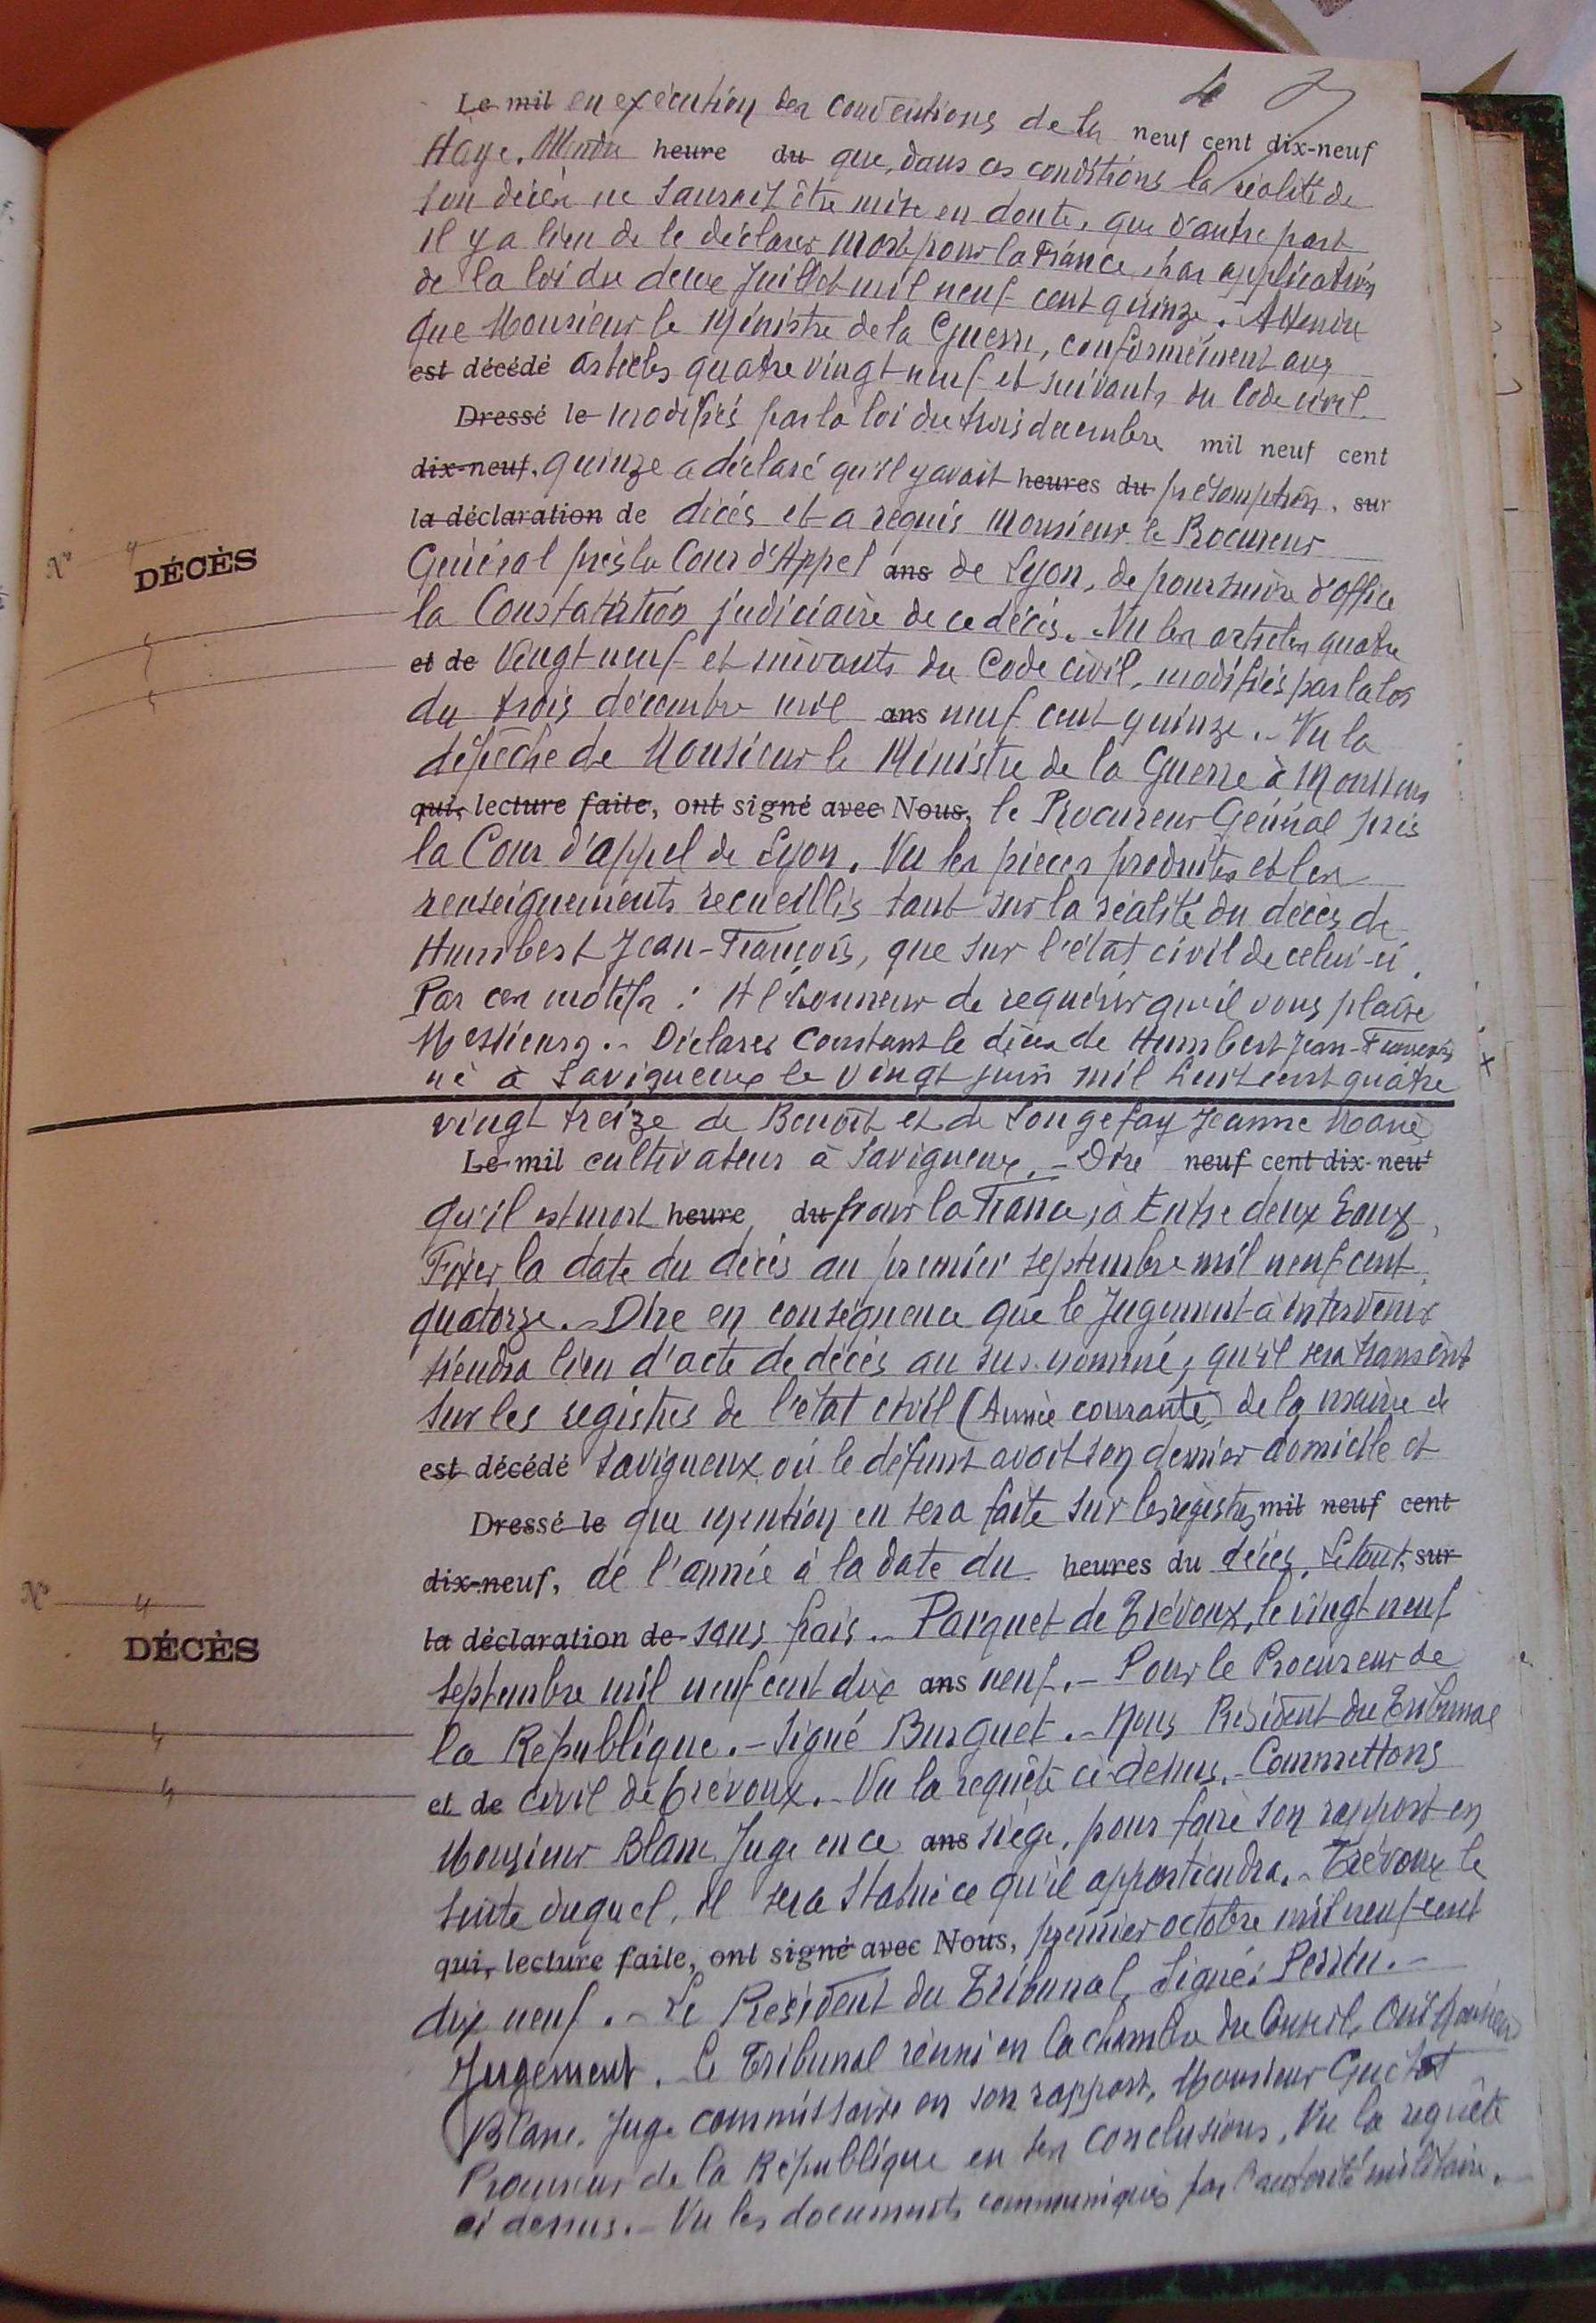 Le mil en exécution des conventions de la neuf cent dix-neuf
Haye. Attendu heure du que, dans ces conditions la réalité de
son décès ne saurait être mise en doute, que d'autre part
il y a lieu de le déclarer mort pour la France, par application
de la loi du deux Juillet mil neuf cent quinze. Attendu
que Monsieur le Ministre de la Guerre, conformément aux
est décédé articles quatre vingt neuf et suivants du Code civil
Dressé le modifiés par la loi du trois décembre mil neuf cent
dix-neuf, quinze a déclaré qu'il y avait heures du présomption, sur
la déclaration de décès et a requis Monsieur le Procureur
N°
DÉCÈS
Général près la Cour d'Appel ans de Lyon, de poursuivre d'office
la Constatation judiciaire de ce décès. Vu les articles quatre
et de vingt neuf et suivants du Code civil, modifiés par la loi
du trois décembre mil ans neuf cent quinze. Vu la
dépêche de Monsieur le Ministre de la Guerre à Monsieur
qui, lecture faite, ont signé avec Nous, le Procureur Général près
la Cour d'appel de Lyon. Vu les pièces produites et les
renseignements recueillis tant sur la réalité du décès de
Humbert Jean-François, que sur l'état civil de celui-ci.
Par ces motifs : A l'honneur de requérir qu'il vous plaise
Messieurs.- Déclarer constant le décès de Humbert Jean-François
né à Savigneux le vingt juin mil huit cent quatre
vingt treize de Benoît et de Longefay Jeanne Marie
Le mil cultivateur à Savigneux.- Dire neuf cent dix-neuf
qu'il est mort heure du pour la France, à Entre deux Eaux,
Fixer la date du décès au premier septembre mil neuf cent
quatorze.- Dire en conséquence que le Jugement à intervenir
tiendra lieu d'acte de décès au sus-nommé, qu'il sera transcrit
sur les registres de l'état civil (Année courante) de la mairie de
est décédé Savigneux où le défunt avait son dernier domicile et
Dressé le que mention en sera faite sur les registres mil neuf cent
dix-neuf, de l'année à la date du heures du décès. Le tout, sur
N°
DÉCÈS
la déclaration de sans frais.- Parquet de Trévoux, le vingt neuf
septembre mil neuf cent dix ans neuf.- Pour le Procureur de
la République.- Signé Burguet.- Nous Président du Tribunal
et de civil de Trévoux.- Vu la requête ci-dessus.- Commettons
Monsieur Blanc Juge en ce ans siège, pour faire son rapport en
suite duquel, il sera statué ce qu'il appartiendra.- Trévoux le
qui, lecture faite, ont signé avec Nous, premier octobre mil neuf cent
dix neuf.- Le Président du Tribunal, Signé:
Jugement. Le Tribunal réuni en la chambre du Conseil, Ouï Monsieur
Blanc. Juge commissaire en son rapport, Monsieur
Procureur de la République en ses conclusions, Vu la requête
ci dessus.- Vu les documents communiqués par l'autorité militaire.